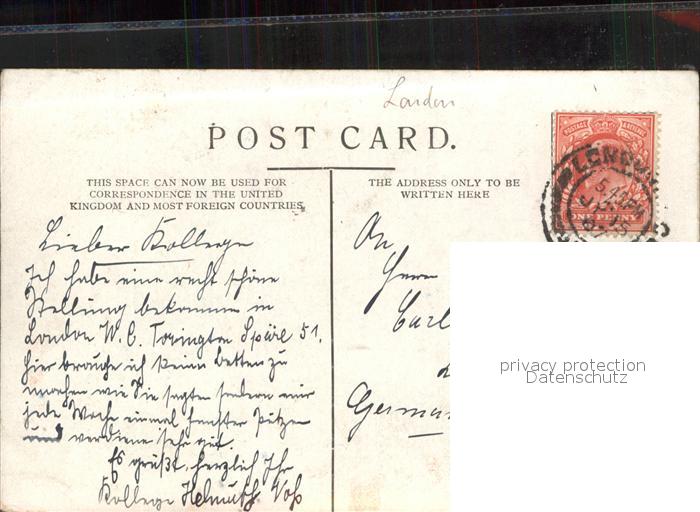 London
POST CARD.
THIS SPACE CAN NOW BE USED FOR
CORRESPONDENCE IN THE UNITED
KINGDOM AND MOST FOREIGN COUNTRIES.
THE ADDRESS ONLY TO BE
WRITTEN HERE
POSTAGE REVENUE
ONE PENNY
LONDON
Lieber Kollege
Ich habe eine recht schöne
Stellung bekommen in
London W. C. Torington Späre 51.
hier brauche ich keine Betten zu
machen wie Sie sagten sondern nur
jede Woche einmal fenster putzen
und verdiene sehr gut.
Es grüßt herzlich Ihr
Kollege Helmuth Voß
An
Herrn
Carl
German
privacy protection
Datenschutz